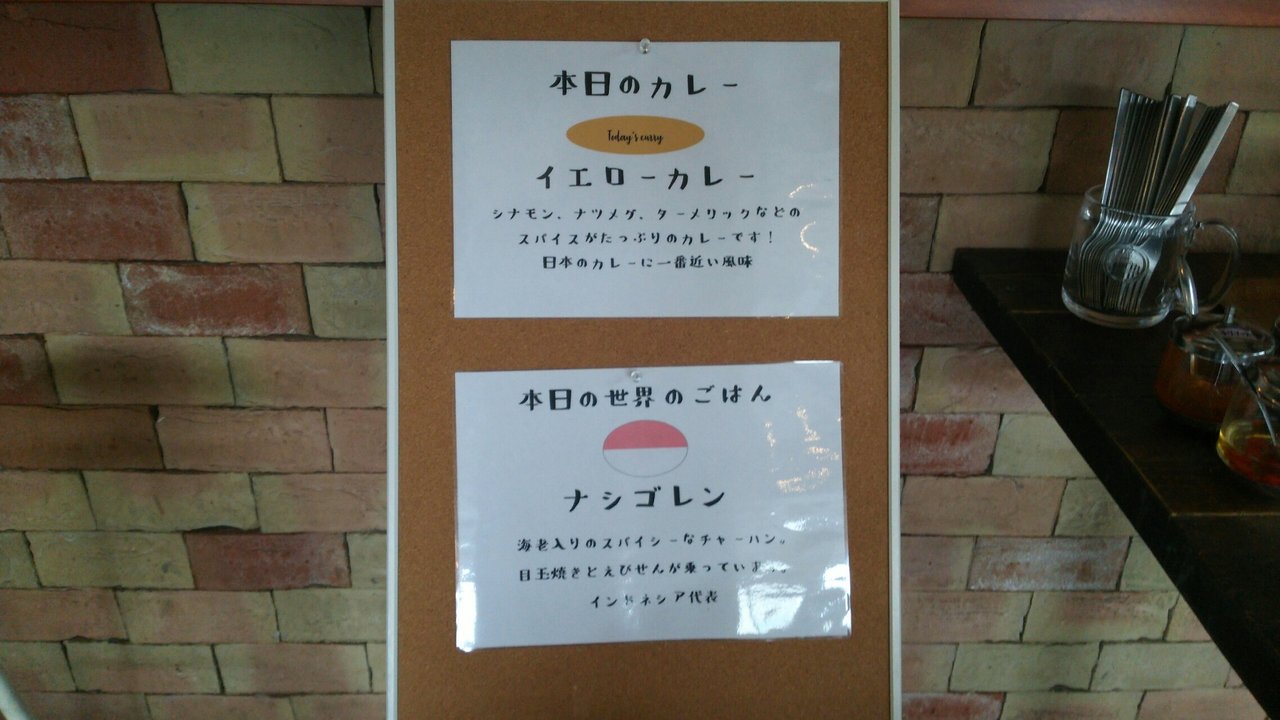 本日のカレー
Today's curry
イエローカレー
シナモン、ナツメグ、ターメリックなどの
スパイスがたっぷりのカレーです!
日本のカレーに一番近い風味
本日の世界のごはん
ナシゴレン
海老入りのスパイシーなチャーハン。
目玉焼きとえびせんが乗っています。
インドネシア代表